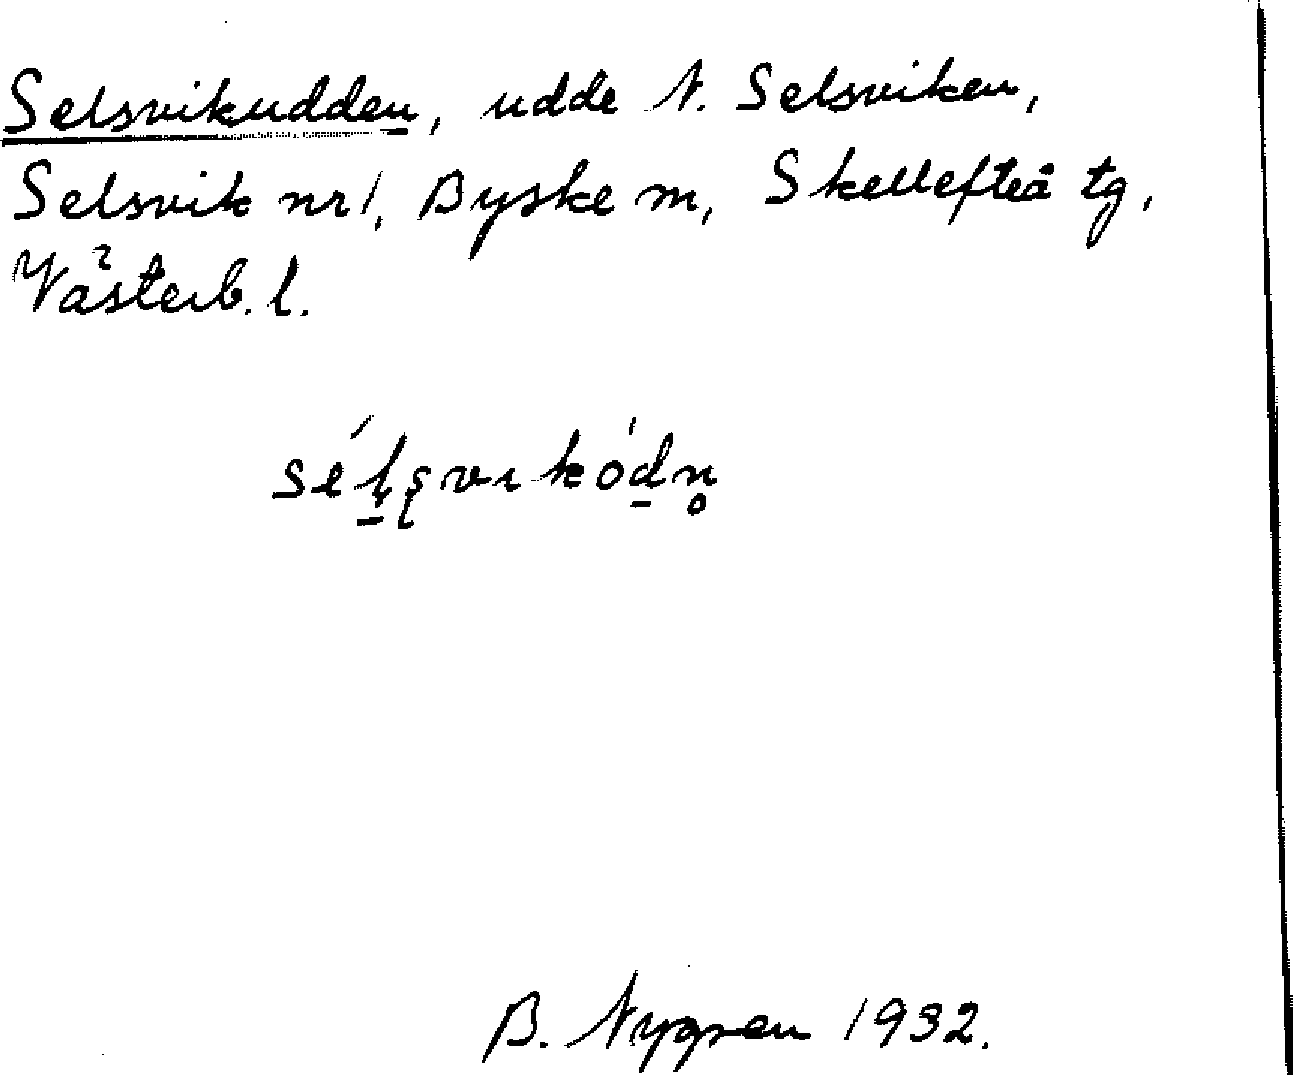 Selsvikudden, udde N. Selsviken,
Selsvik nr 1, Byske sn, Skellefteå tg,
Västerb. l.
B. Nygren 1932.